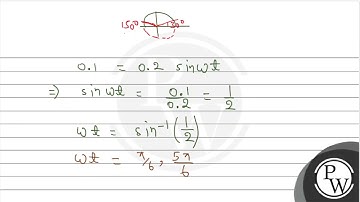 150° 150°
0.1 = 0.2 sinwt
⇒ sinwt = 0.1/0.2 = 1/2
wt = sin⁻¹(1/2)
wt = π/6, 5π/6
PW